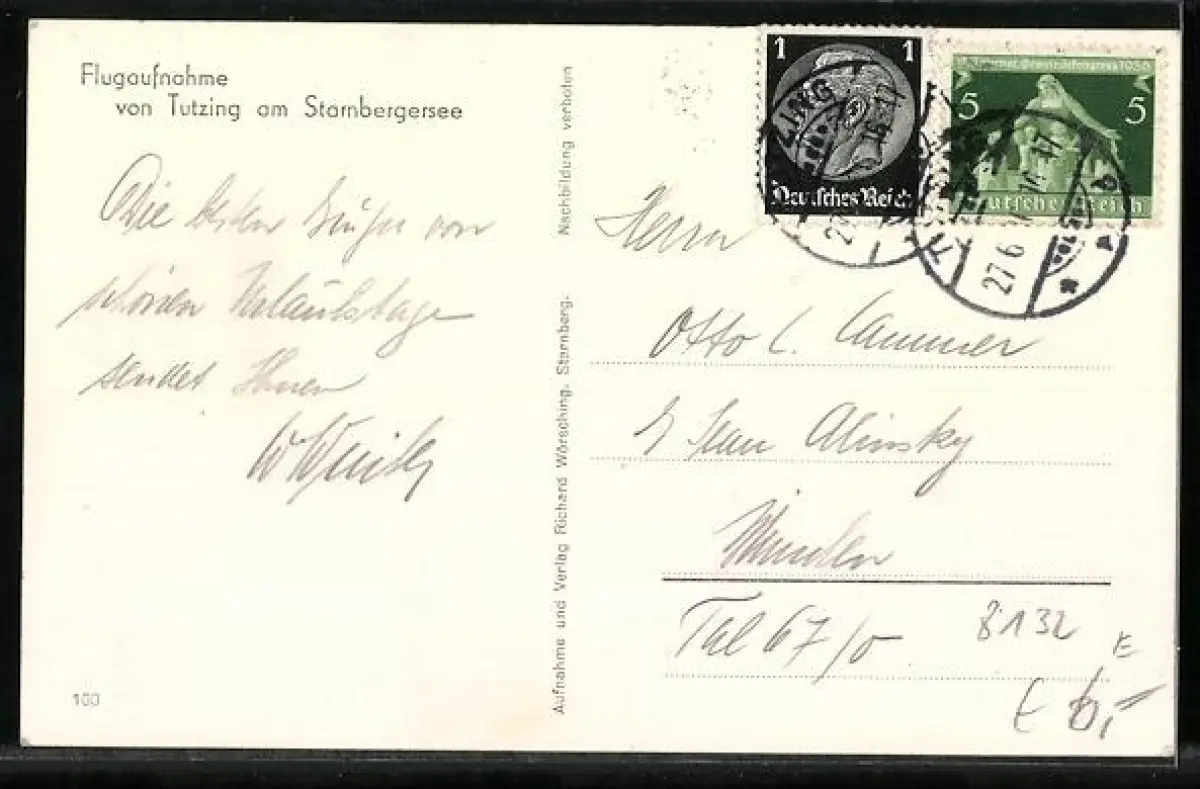 Flugaufnahme
von Tutzing am Starnbergersee
Die besten Grüße von
schönen Urlaubstage
sendet Ihnen
100
Aufnahme und Verlag Richard Wörsching, Starnberg. Nachbildung verboten
1 1
Deutsches Reich
5 5
Deutsches Reich
TUTZING
27.6
Herrn
Otto C. Cammer
Alinsky
München
Tal 67/0
8132
E